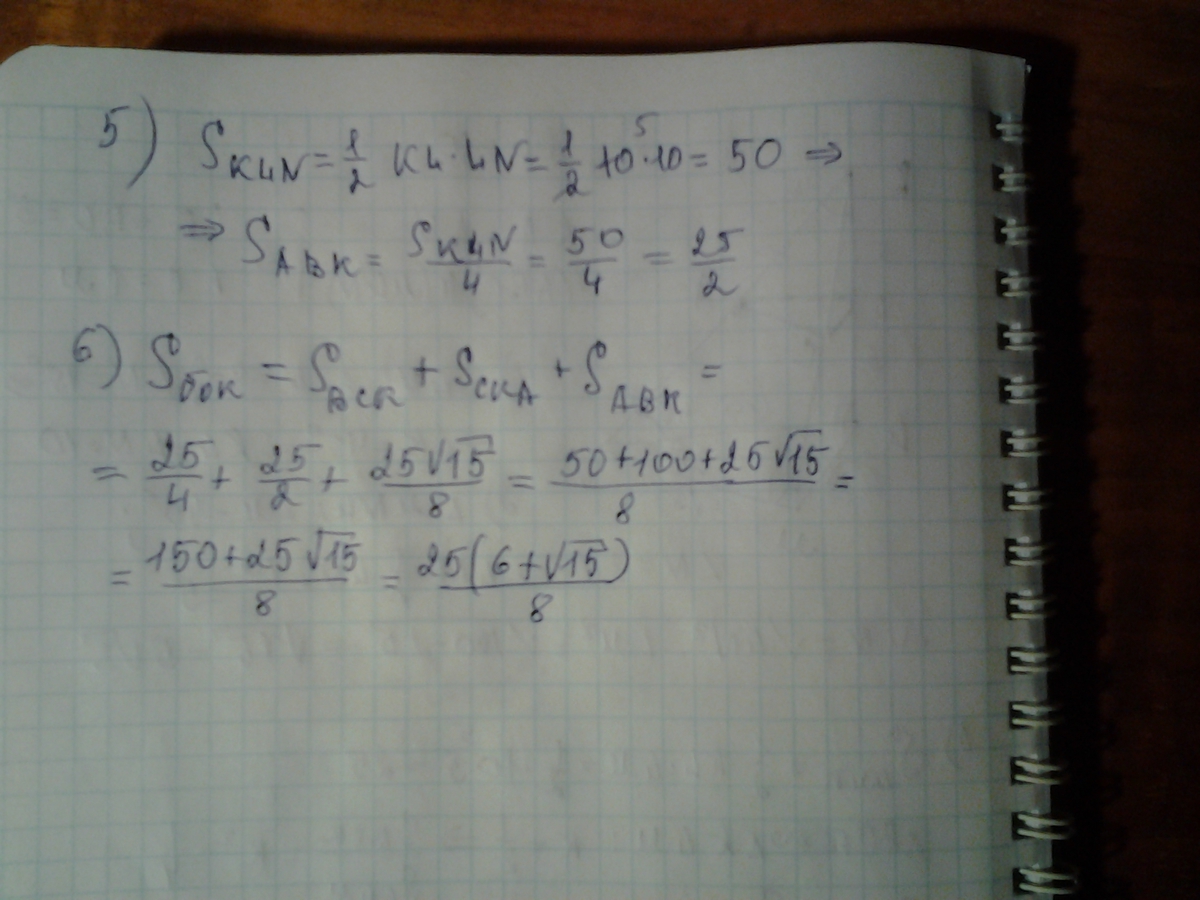 5) S_KLN = 1/2 KL · LN = 1/2 10 5 · 10 = 50 ⇒
⇒ S_ABK = S_KLN/4 = 50/4 = 25/2
6) S_бок = S_BCK + S_CKA + S_ABK =
= 25/4 + 25/2 + 25√15/8 = (50+100+25√15)/8 =
= (150+25√15)/8 = 25(6+√15)/8